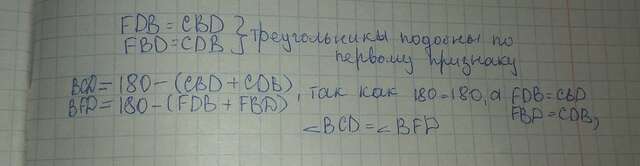 FDB = CBD } треугольники подобны по
FBD = CDB } первому признаку
BCD = 180 - (CBD + CDB), так как 180 = 180, а FDB = CBD
BFD = 180 - (FDB + FBD) FBD = CDB,
∠BCD = ∠BFD